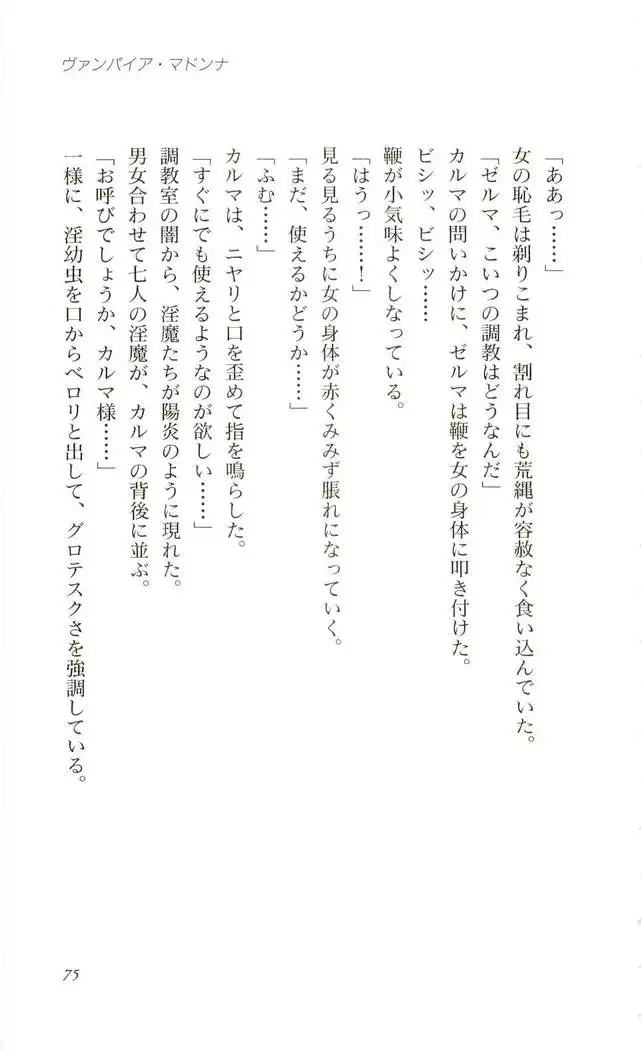 ヴァンパイア・マドンナ
「ああっ……」
女の恥毛は剃りこまれ、割れ目にも荒縄が容赦なく食い込んでいた。
「ゼルマ、こいつの調教はどうなんだ」
カルマの問いかけに、ゼルマは鞭を女の身体に叩き付けた。
ビシッ、ビシッ……
鞭が小気味よくしなっている。
「はうっ……！」
見る見るうちに女の身体が赤くみみず脹れになっていく。
「まだ、使えるかどうか……」
「ふむ……」
カルマは、ニヤリと口を歪めて指を鳴らした。
「すぐにでも使えるようなのが欲しい……」
調教室の闇から、淫魔たちが陽炎のように現れた。
男女合わせて七人の淫魔が、カルマの背後に並ぶ。
「お呼びでしょうか、カルマ様……」
一様に、淫幼虫を口からベロリと出して、グロテスクさを強調している。
75